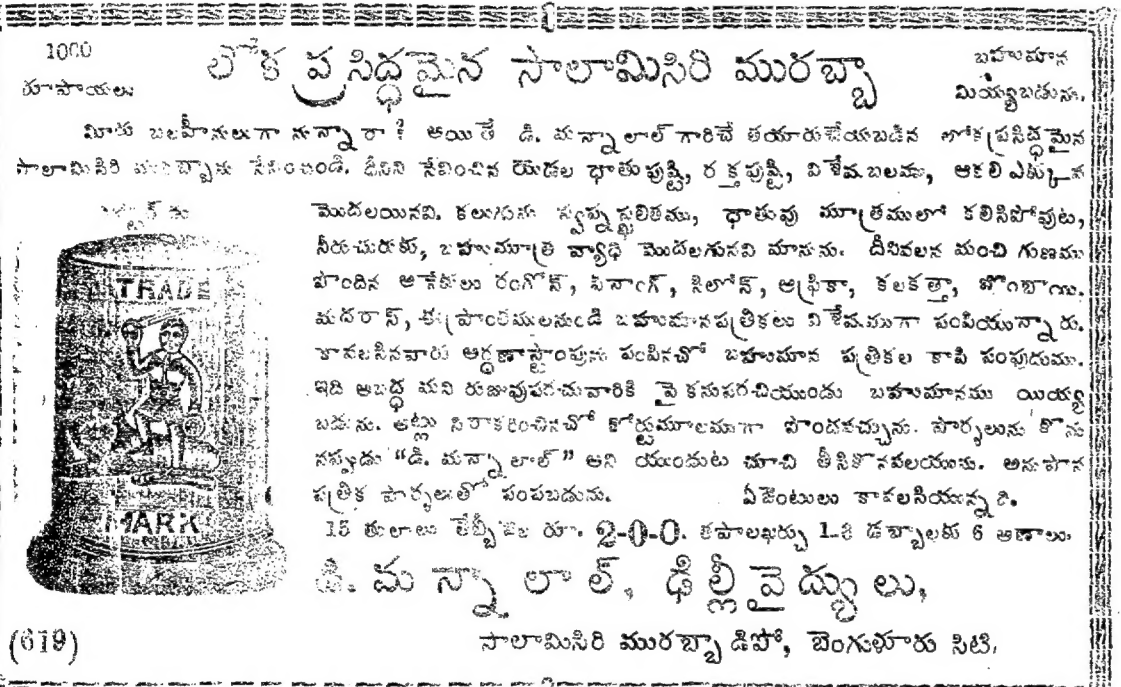 1000
రూపాయలు
లోక ప్రసిద్ధమైన సాలామిసిరి మురబ్బా
బహుమాన
మియ్యబడును.
మీరు బలహీనులుగా నున్నారా? అయితే డి. మన్నాలాల్ గారిచే తయారుచేయబడిన లోకప్రసిద్ధమైన
సాలామిసిరి మురబ్బాను సేవించండి. దీనిని సేవించిన యెడల ధాతుపుష్టి, రక్తపుష్టి, విశేషబలము, ఆకలి ఎక్కువ
మొదలయినవి. కలుగును స్వప్నస్ఖలితము, ధాతువు మూత్రములో కలిసిపోవుట,
నీరుచురుకు, బహుమూత్ర వ్యాధి మొదలగునవి మానును. దీనివలన మంచి గుణము
పొందిన అనేకులు రంగోన్, పినాంగ్, సిలోన్, ఆఫ్రికా, కలకత్తా, బొంబాయి,
మదరాస్, ఈ ప్రాంతములనుండి బహుమానపత్రికలు విశేషముగా పంపియున్నారు.
కావలసినవారు అర్ధణాస్టాంపును పంపినచో బహుమాన పత్రికల కాపి పంపుదుము.
ఇది అబద్ధ మని రుజువుపరచువారికి పై కనుపరచియుండు బహుమానము యియ్య
బడును. అట్లు నిరాకరించినచో కోర్టుమూలముగా పొందవచ్చును. పార్సలును కొను
నప్పుడు "డి. మన్నాలాల్" అని యుందుట చూచి తీసికొనవలయును. అనుపాన
పత్రిక పార్సలుతో పంపబడును. ఏజెంటులు కావలసియున్నది.
15 తులాలు డబ్బీ వెల రూ. 2-0-0. తపాలఖర్చు 1-3 డబ్బాలకు 6 అణాలు.
TRADE
MARK
డి. మన్నాలాల్, ఢిల్లీవైద్యులు,
(619)
సాలామిసిరి మురబ్బా డిపో, బెంగుళూరు సిటి.